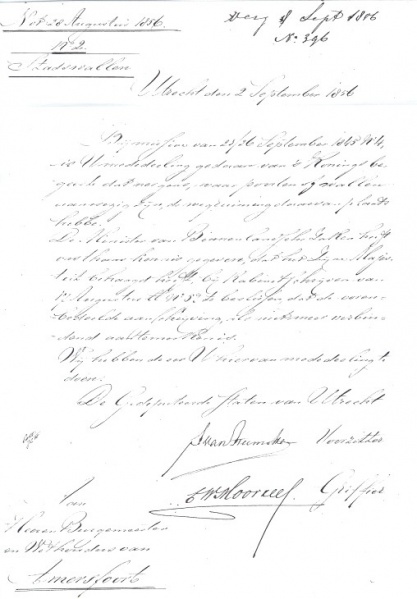 Not 28 Augustus 1886.
No 2.
Stadswallen
Verg 8 Sept 1886
No 396
Utrecht den 2 September 1886
Bij missive van 23/26 September 1865 No 4,
is U mededeeling gedaan van 's Konings be-
geerte dat nergens, waar poorten of wallen
aanwezig zijn, de wegruiming daarvan plaats
hebbe.
De Minister van Binnenlandsche Zaken heeft
ons thans kennis gegeven, dat het Z. M. Majes-
teit behaagd heeft, bij Kabinetschrijven van
17 Augustus No te beslissen dat de voren-
bedoelde aanschrijving, als niet meer verbin-
dend aan te merken is.
Wij hebben de eer U hiervan mededeeling te
doen.
De Gedeputeerde Staten van Utrecht
Voorzitter
Griffier
Aan
Heeren Burgemeester
en Wethouders van
Amersfoort